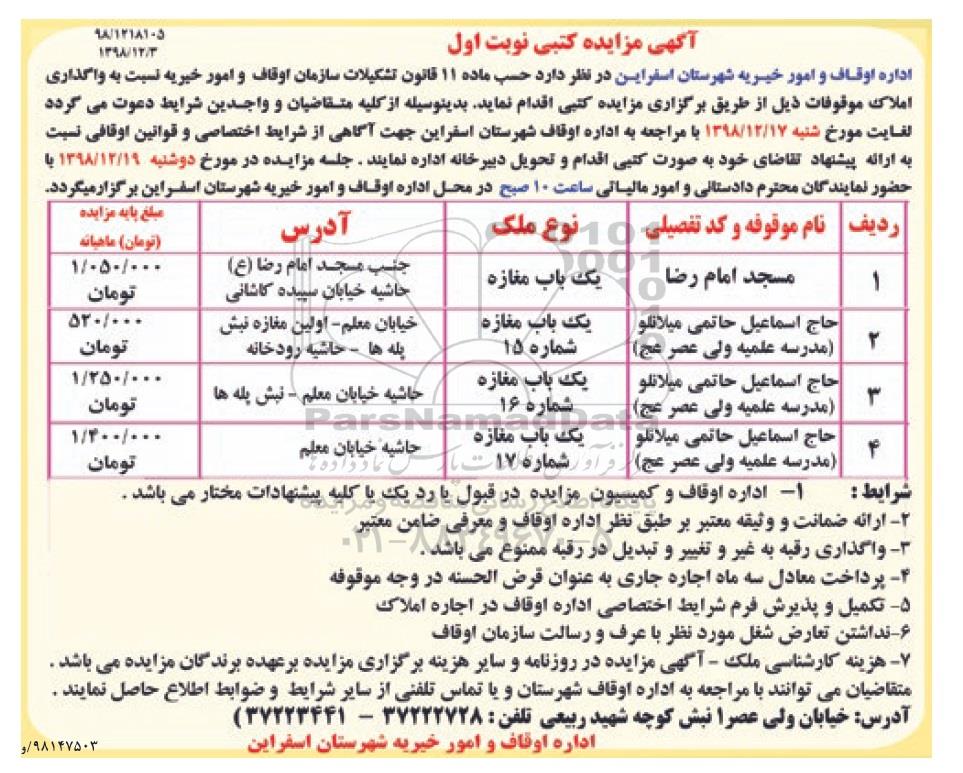 ۹۸/۱۲۱۸۱۰۵
۱۳۹۸/۱۲/۳
آگهی مزایده کتبی نوبت اول
اداره اوقاف و امور خیریه شهرستان اسفراین در نظر دارد حسب ماده ۱۱ قانون تشکیلات سازمان اوقاف و امور خیریه نسبت به واگذاری
املاک موقوفات ذیل از طریق برگزاری مزایده کتبی اقدام نماید. بدینوسیله ازکلیه متقاضیان و واجدین شرایط دعوت می گردد
لغایت مورخ شنبه ۱۳۹۸/۱۲/۱۷ با مراجعه به اداره اوقاف شهرستان اسفراین جهت آگاهی از شرایط اختصاصی و قوانین اوقافی نسبت
به ارائه پیشنهاد تقاضای خود به صورت کتبی اقدام و تحویل دبیرخانه اداره نمایند . جلسه مزایده در مورخ دوشنبه ۱۳۹۸/۱۲/۱۹ با
حضور نمایندگان محترم دادستانی و امور مالیاتی ساعت ۱۰ صبح در محل اداره اوقاف و امور خیریه شهرستان اسفراین برگزارمیگردد.
ردیف نام موقوفه و کد تفصیلی نوع ملک آدرس مبلغ پایه مزایده (تومان) ماهیانه
۱ مسجد امام رضا یک باب مغازه جنب مسجد امام رضا (ع) حاشیه خیابان سپیده کاشانی ۱/۰۵۰/۰۰۰ تومان
۲ حاج اسماعیل حاتمی میلانلو (مدرسه علمیه ولی عصر عج) یک باب مغازه شماره ۱۵ خیابان معلم- اولین مغازه نبش پله ها - حاشیه رودخانه ۵۲۰/۰۰۰ تومان
۳ حاج اسماعیل حاتمی میلانلو (مدرسه علمیه ولی عصر عج) یک باب مغازه شماره ۱۶ حاشیه خیابان معلم - نبش پله ها ۱/۲۵۰/۰۰۰ تومان
۴ حاج اسماعیل حاتمی میلانلو (مدرسه علمیه ولی عصر عج) یک باب مغازه شماره ۱۷ حاشیه خیابان معلم ۱/۴۰۰/۰۰۰ تومان
ParsNamadData
شرایط : ۱- اداره اوقاف و کمیسیون مزایده در قبول یا رد یک یا کلیه پیشنهادات مختار می باشد .
۲- ارائه ضمانت و وثیقه معتبر بر طبق نظر اداره اوقاف و معرفی ضامن معتبر
۳- واگذاری رقبه به غیر و تغییر و تبدیل در رقبه ممنوع می باشد .
۰۲۱-۸۸۳۴۹۶۷۰-۵
۴- پرداخت معادل سه ماه اجاره جاری به عنوان قرض الحسنه در وجه موقوفه
۵- تکمیل و پذیرش فرم شرایط اختصاصی اداره اوقاف در اجاره املاک
۶-نداشتن تعارض شغل مورد نظر با عرف و رسالت سازمان اوقاف
۷- هزینه کارشناسی ملک - آگهی مزایده در روزنامه و سایر هزینه برگزاری مزایده برعهده برندگان مزایده می باشد .
متقاضیان می توانند با مراجعه به اداره اوقاف شهرستان و یا تماس تلفنی از سایر شرایط و ضوابط اطلاع حاصل نمایند .
آدرس: خیابان ولی عصر۱ نبش کوچه شهید ربیعی تلفن : ۳۷۲۲۲۷۲۸ - ۳۷۲۲۳۴۴۱ )
اداره اوقاف و امور خیریه شهرستان اسفراین
۹۸۱۴۷۵۰۳/و